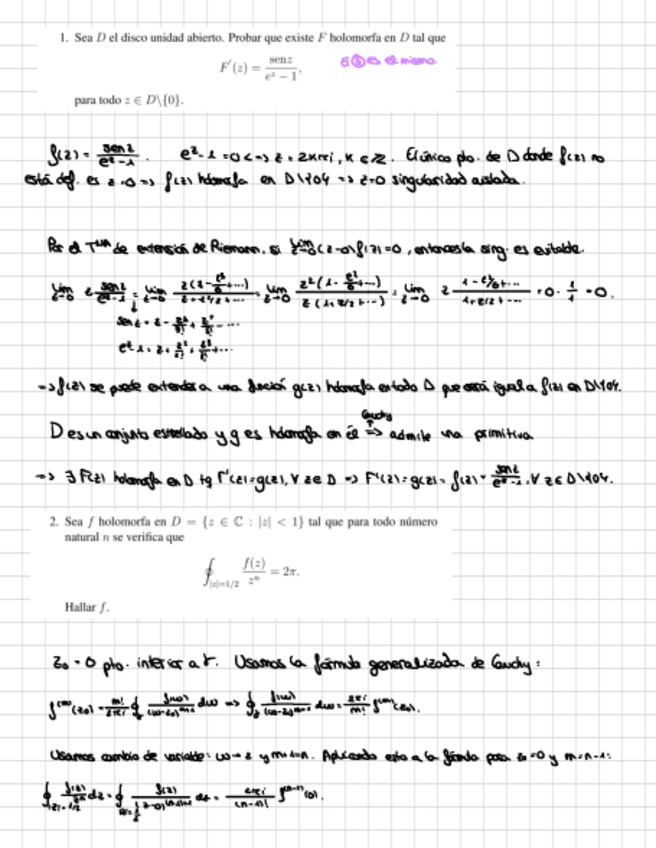 1. Sea D el disco unidad abierto. Probar que existe F holomorfa en D tal que
F'(z) = sen z / (e^z − 1),
para todo z ∈ D\{0}.
f(z) = sen z / (e^z − 1). e^z − 1 = 0 <=> z = 2kπi, k ∈ Z. El único pto. de D donde f(z) no
está def. es z = 0 => f(z) holomorfa en D\{0} => z=0 singularidad aislada.
Por el Tma de extensión de Riemann, si lim z→0 (z−0) f(z) = 0, entonces la sing. es evitable.
lim z→0 z sen z / (e^z − 1) = lim z→0 z(z − z³/6 + ...) / (z + z²/2 + ...) = lim z→0 z²(1 − z²/6 + ...) / z(1 + z/2 + ...) = lim z→0 z (1 − z²/6 + ...) / (1 + z/2 + ...) = 0 · 1/1 = 0.
sen z = z − z³/3! + z⁵/5! − ...
e^z − 1 = z + z²/2! + z³/3! + ...
=> f(z) se puede extender a una función g(z) holomorfa en todo D que será igual a f(z) en D\{0}.
Cauchy
D es un conjunto estrellado y g es holomorfa en él => admite una primitiva
=> ∃ F(z) holomorfa en D tq F'(z) = g(z), ∀ z ∈ D => F'(z) = g(z) = f(z) = sen z / (e^z − 1), ∀ z ∈ D\{0}.
2. Sea f holomorfa en D = {z ∈ C : |z| < 1} tal que para todo número
natural n se verifica que
∮_{|z|=1/2} f(z)/z^n = 2π.
Hallar f.
z₀ = 0 pto. interior a γ. Usamos la fórmula generalizada de Cauchy:
f^(m)(z₀) = m!/2πi ∮_γ f(w)/(w−z₀)^{m+1} dw => ∮_γ f(w)/(w−z₀)^{m+1} dw = 2πi/m! f^(m)(z₀).
Usamos cambio de variable: w → z y m+1=n. Aplicando esto a la fórmula para z₀=0 y m=n−1:
∮_{|z|=1/2} f(z)/z^n dz = ∮_{|z|=1/2} f(z)/(z−0)^{(n−1)+1} dz = 2πi/(n−1)! f^(n−1)(0).